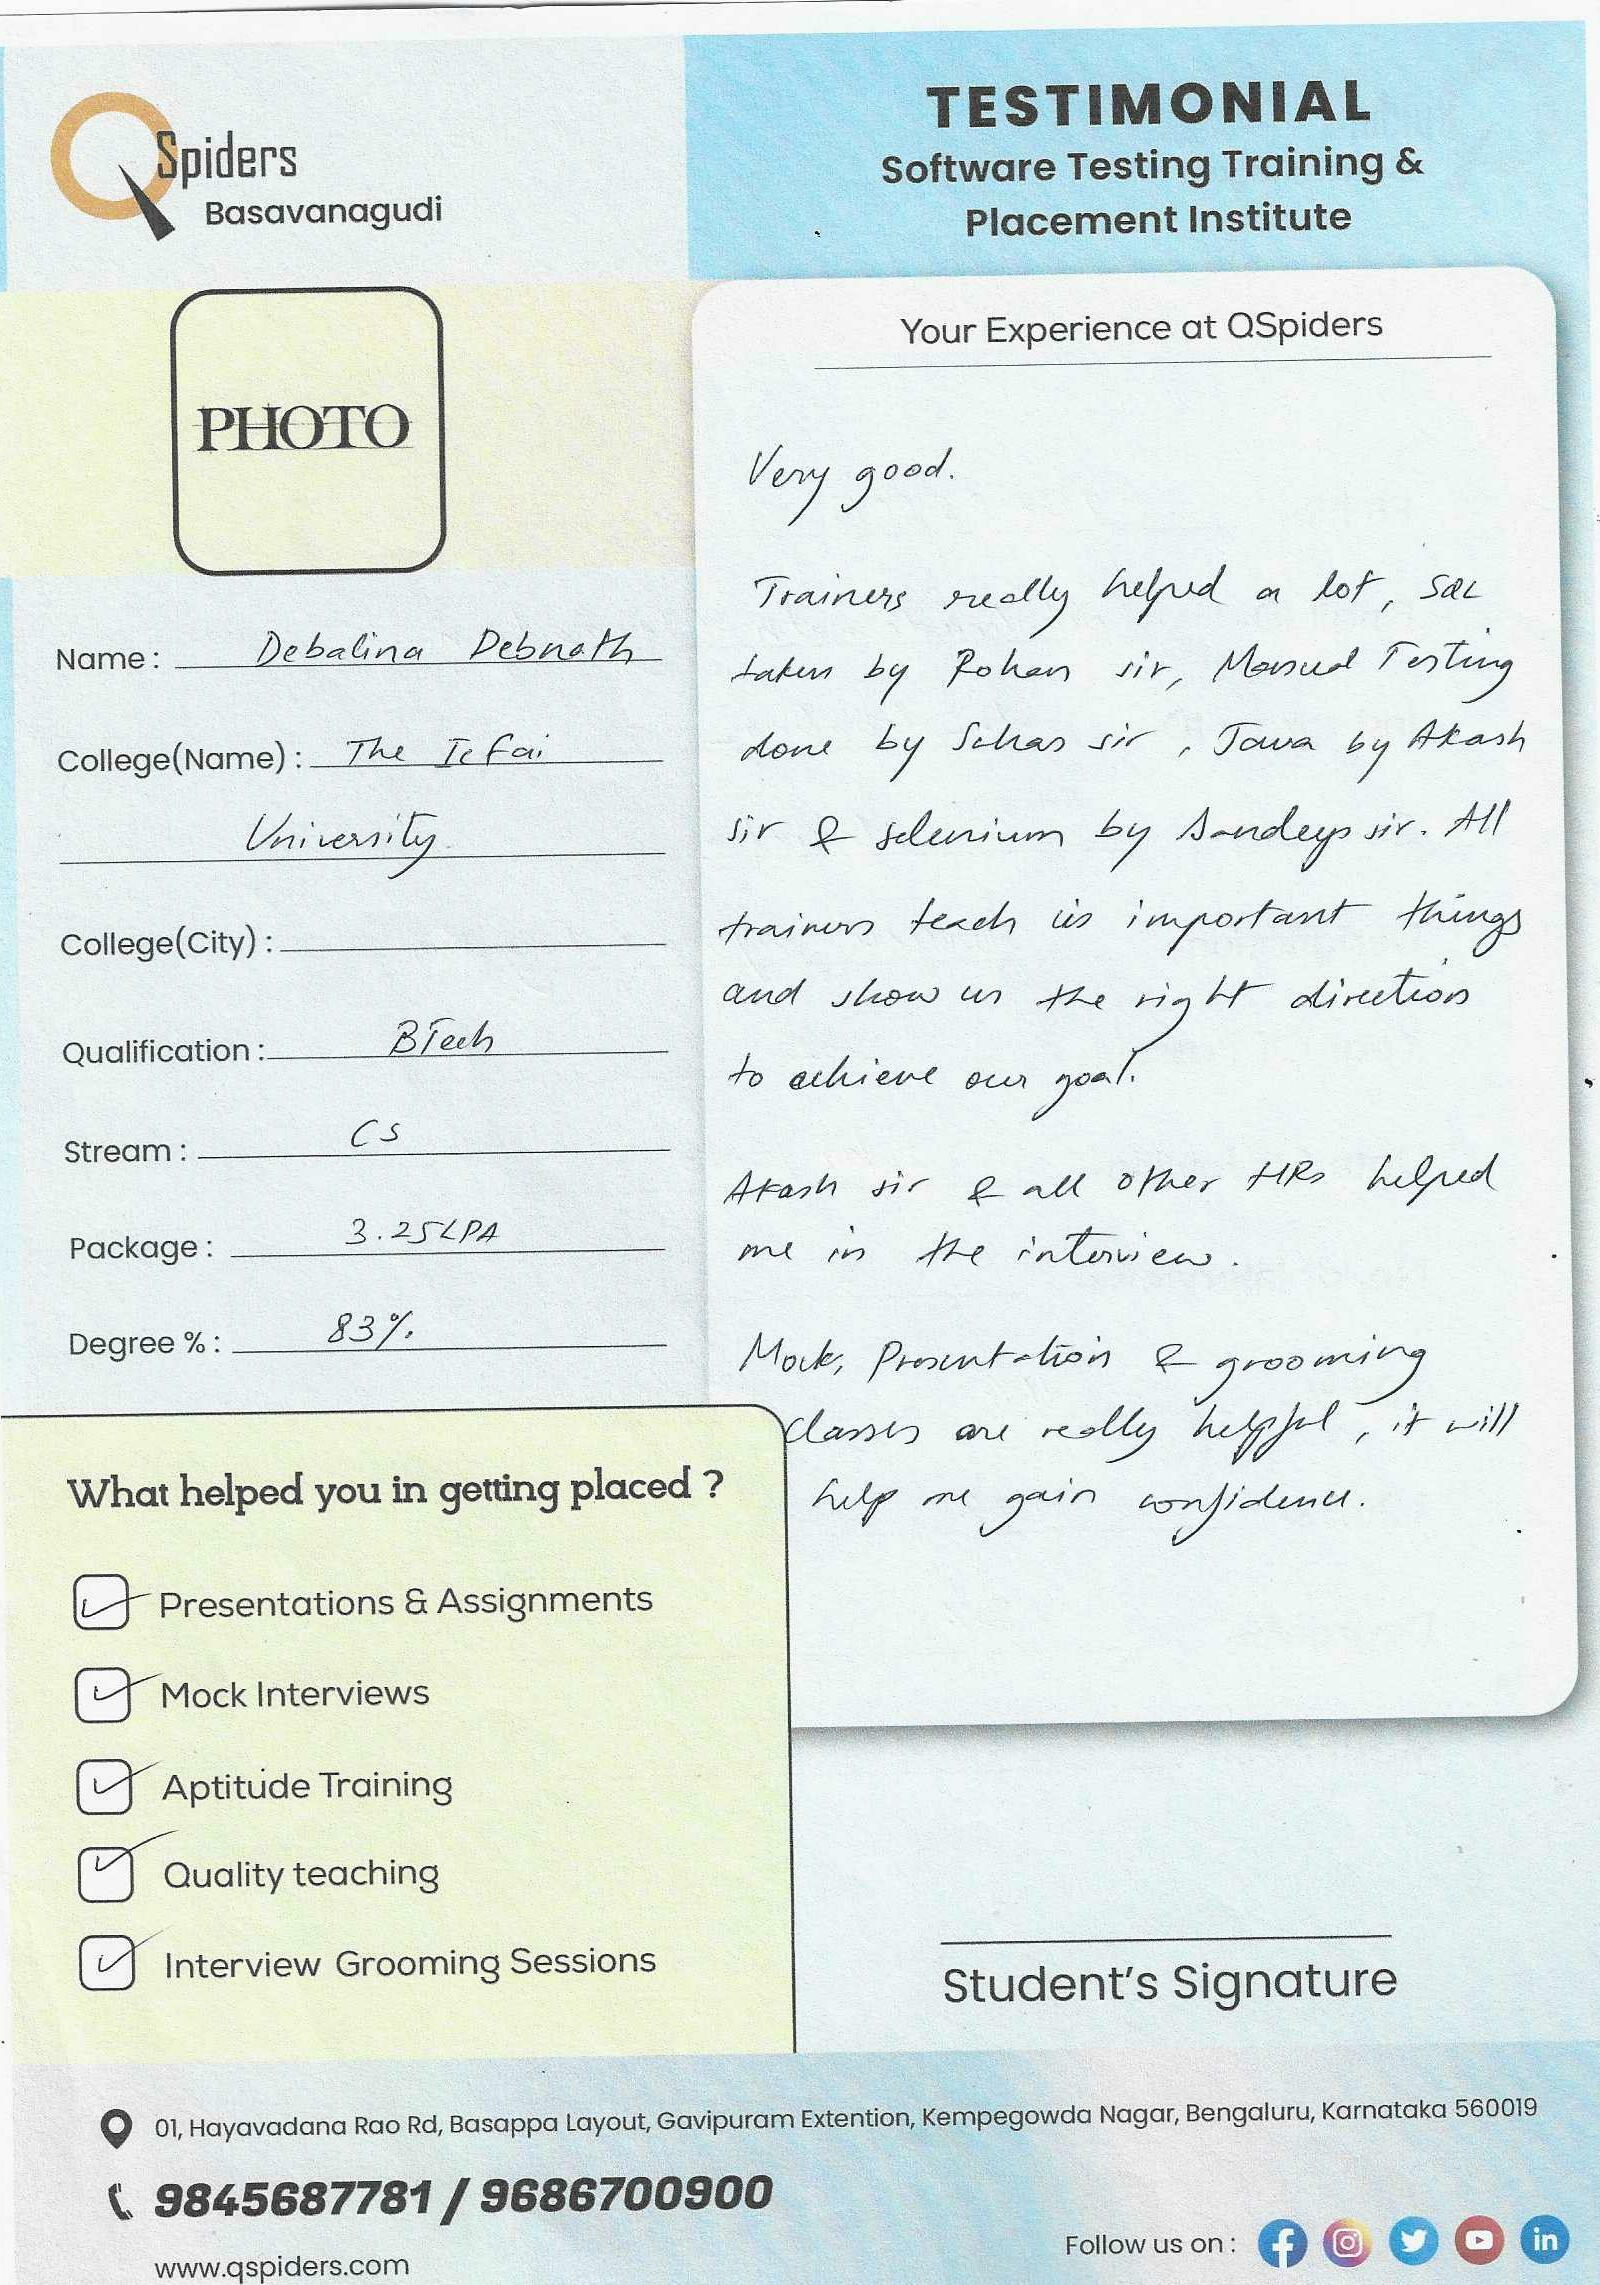 QSpiders
Basavanagudi
TESTIMONIAL
Software Testing Training &
Placement Institute
PHOTO
Name : Debalina Debnath
College(Name) : The Icfai
University
College(City) :
Qualification : BTech
Stream : CS
Package : 3.25LPA
Degree % : 83%
Your Experience at QSpiders
Very good.
Trainers really helped a lot, SQL
taken by Rohan sir, Manual Testing
done by Suhas sir, Java by Akash
sir & selenium by Sandeep sir. All
trainers teach us important things
and show us the right direction
to achieve our goal.
Akash sir & all other HRs helped
me in the interview.
Mock, Presentation & grooming
classes are really helpful, it will
help me gain confidence.
What helped you in getting placed ?
Presentations & Assignments
Mock Interviews
Aptitude Training
Quality teaching
Interview Grooming Sessions
Student's Signature
01, Hayavadana Rao Rd, Basappa Layout, Gavipuram Extention, Kempegowda Nagar, Bengaluru, Karnataka 560019
9845687781 / 9686700900
www.qspiders.com
Follow us on :